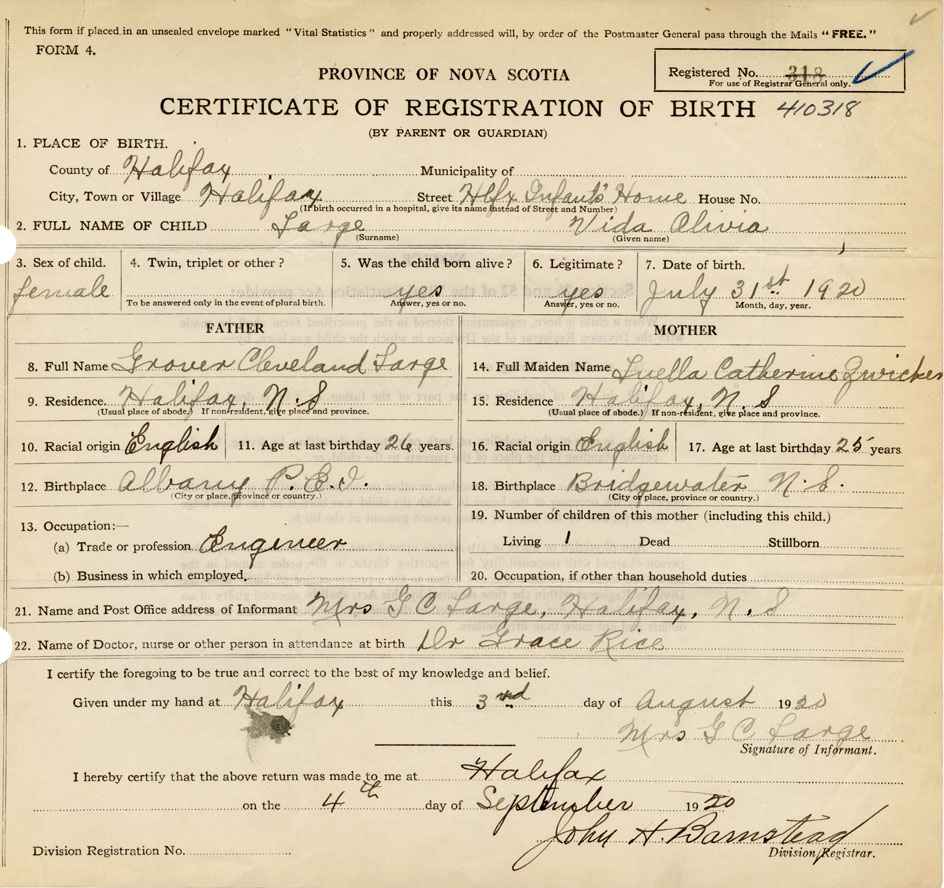 This form if placed in an unsealed envelope marked "Vital Statistics" and properly addressed will, by order of the Postmaster General pass through the Mails "FREE."
FORM 4.
PROVINCE OF NOVA SCOTIA
Registered No. 318
For use of Registrar General only.
CERTIFICATE OF REGISTRATION OF BIRTH 410318
(BY PARENT OR GUARDIAN)
1. PLACE OF BIRTH.
County of Halifax Municipality of
City, Town or Village Halifax Street Hlfx Infants' Home House No.
(If birth occurred in a hospital, give its name instead of Street and Number)
2. FULL NAME OF CHILD Large Vida Olivia
(Surname) (Given name)
3. Sex of child. 4. Twin, triplet or other? 5. Was the child born alive? 6. Legitimate? 7. Date of birth.
female yes yes July 31st 1920
To be answered only in the event of plural birth. Answer, yes or no. Answer, yes or no. Month, day, year.
FATHER MOTHER
8. Full Name Grover Cleveland Large 14. Full Maiden Name Luella Catherine Zwicker
9. Residence. Halifax, N.S 15. Residence Halifax, N.S
(Usual place of abode.) If non-resident, give place and province. (Usual place of abode.) If non-resident, give place and province.
10. Racial origin English 11. Age at last birthday 26 years. 16. Racial origin English 17. Age at last birthday 25 years
12. Birthplace Albany P.E.I. 18. Birthplace Bridgewater N.S.
(City or place, province or country.) (City or place, province or country.)
13. Occupation:— 19. Number of children of this mother (including this child.)
(a) Trade or profession Engineer Living 1 Dead Stillborn
(b) Business in which employed. 20. Occupation, if other than household duties
21. Name and Post Office address of Informant Mrs G C Large, Halifax, N.S
22. Name of Doctor, nurse or other person in attendance at birth Dr Grace Rice
I certify the foregoing to be true and correct to the best of my knowledge and belief.
Given under my hand at Halifax this 3rd day of August 1920
Mrs G C Large
Signature of Informant.
I hereby certify that the above return was made to me at Halifax
on the 4th day of September 1920
John H. Barnstead
Division Registrar.
Division Registration No.